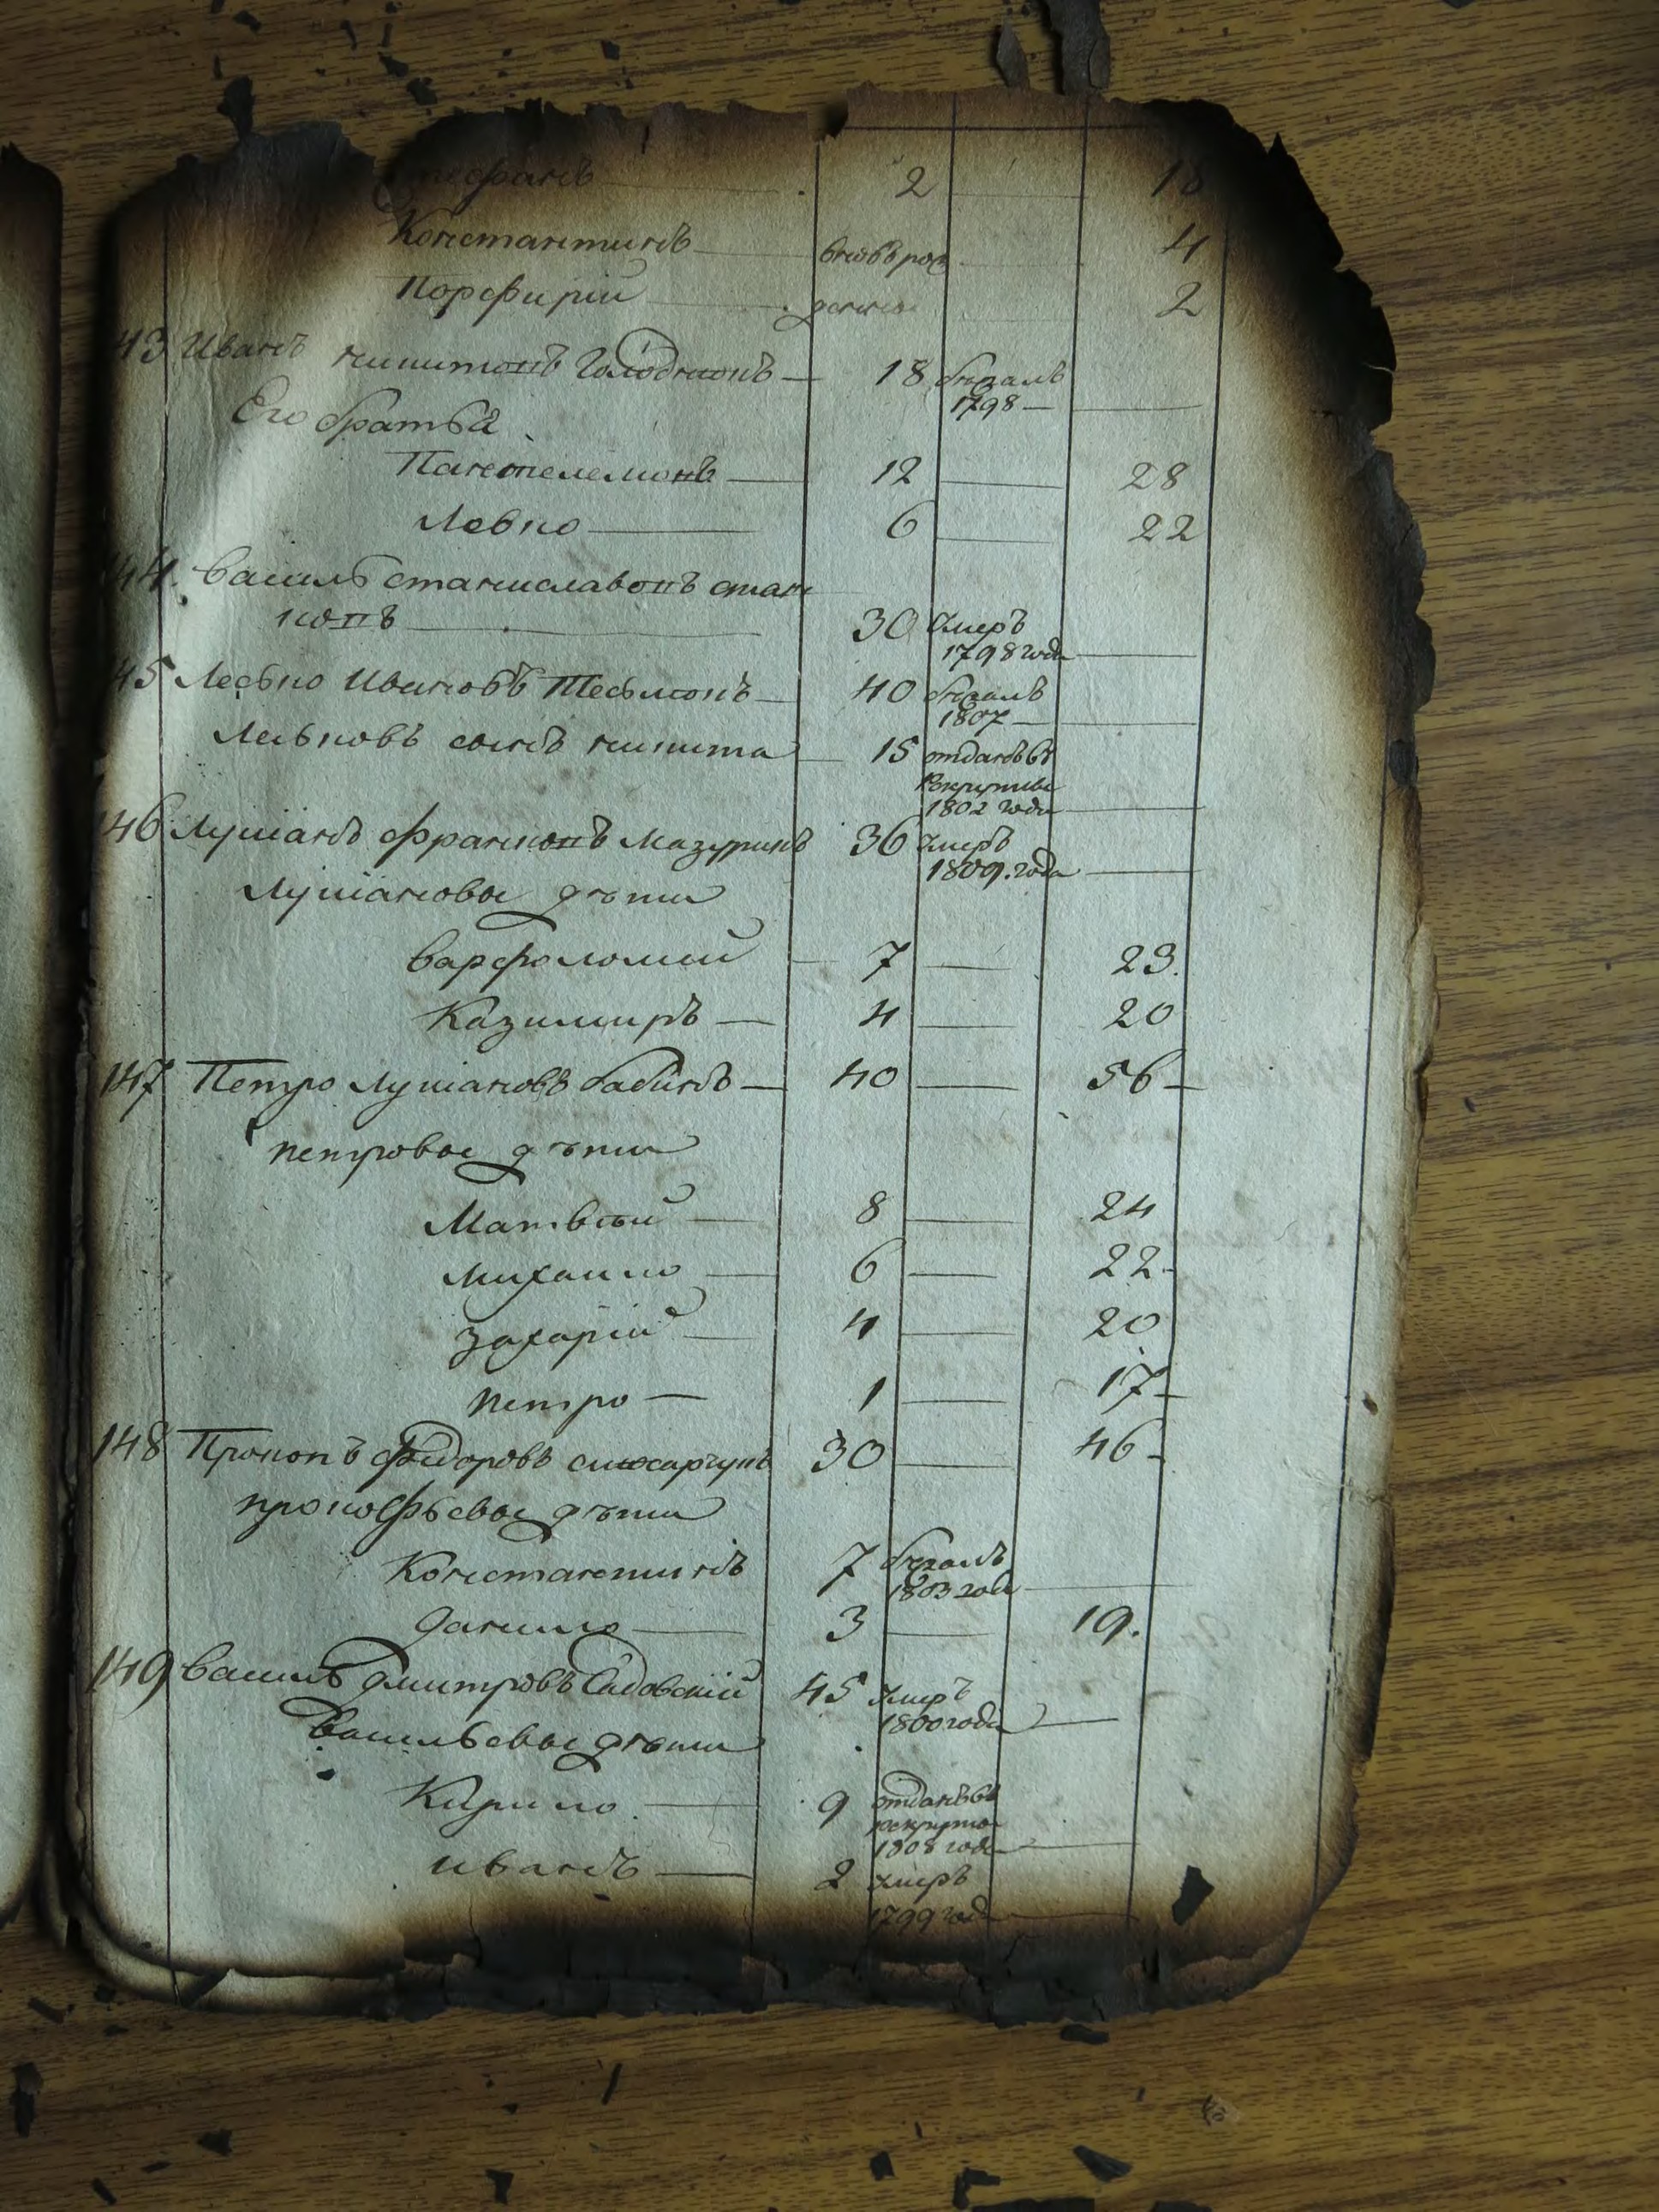 Стефанъ 2 18
Константинъ вновь рож 4
Порфирій денны 2
143 Иванъ Никитонъ Голодконъ 18 бѣжалъ
1798
Его братья
Пантелемонъ 12 28
Левко 6 22
144 Василь Станиславонъ Стан
конъ 30 Умеръ
1798 года
145 Левко Ивановъ 40 бѣжалъ
1807
Левковъ сынъ Никита 15 отданъ въ
Рекруты
1802 года
146 Лукіанъ Франконъ Мазурикъ 36 Умеръ
1809. года
Лукіановы дѣти
Варфоломей 7 23.
Казимиръ 4 20
147 Петро Лукіановъ Бабинъ 40 56
Петровы дѣти
Матвѣй 8 24
Михаило 6 22
Захарій 4 20
Петро 1 17
148 Прокопъ Федоровъ Слюсарчукъ 30 46
Прокофьевы дѣти
Константинъ 7 бѣжалъ
1803 года
Данило 3 19.
149 Василь Дмитровъ Садовскій 45 Умеръ
1800 года
Васильевы дѣти
Кирило 9 отданъ въ
рекруты
1808 года
Иванъ 2 Умеръ
1799 года